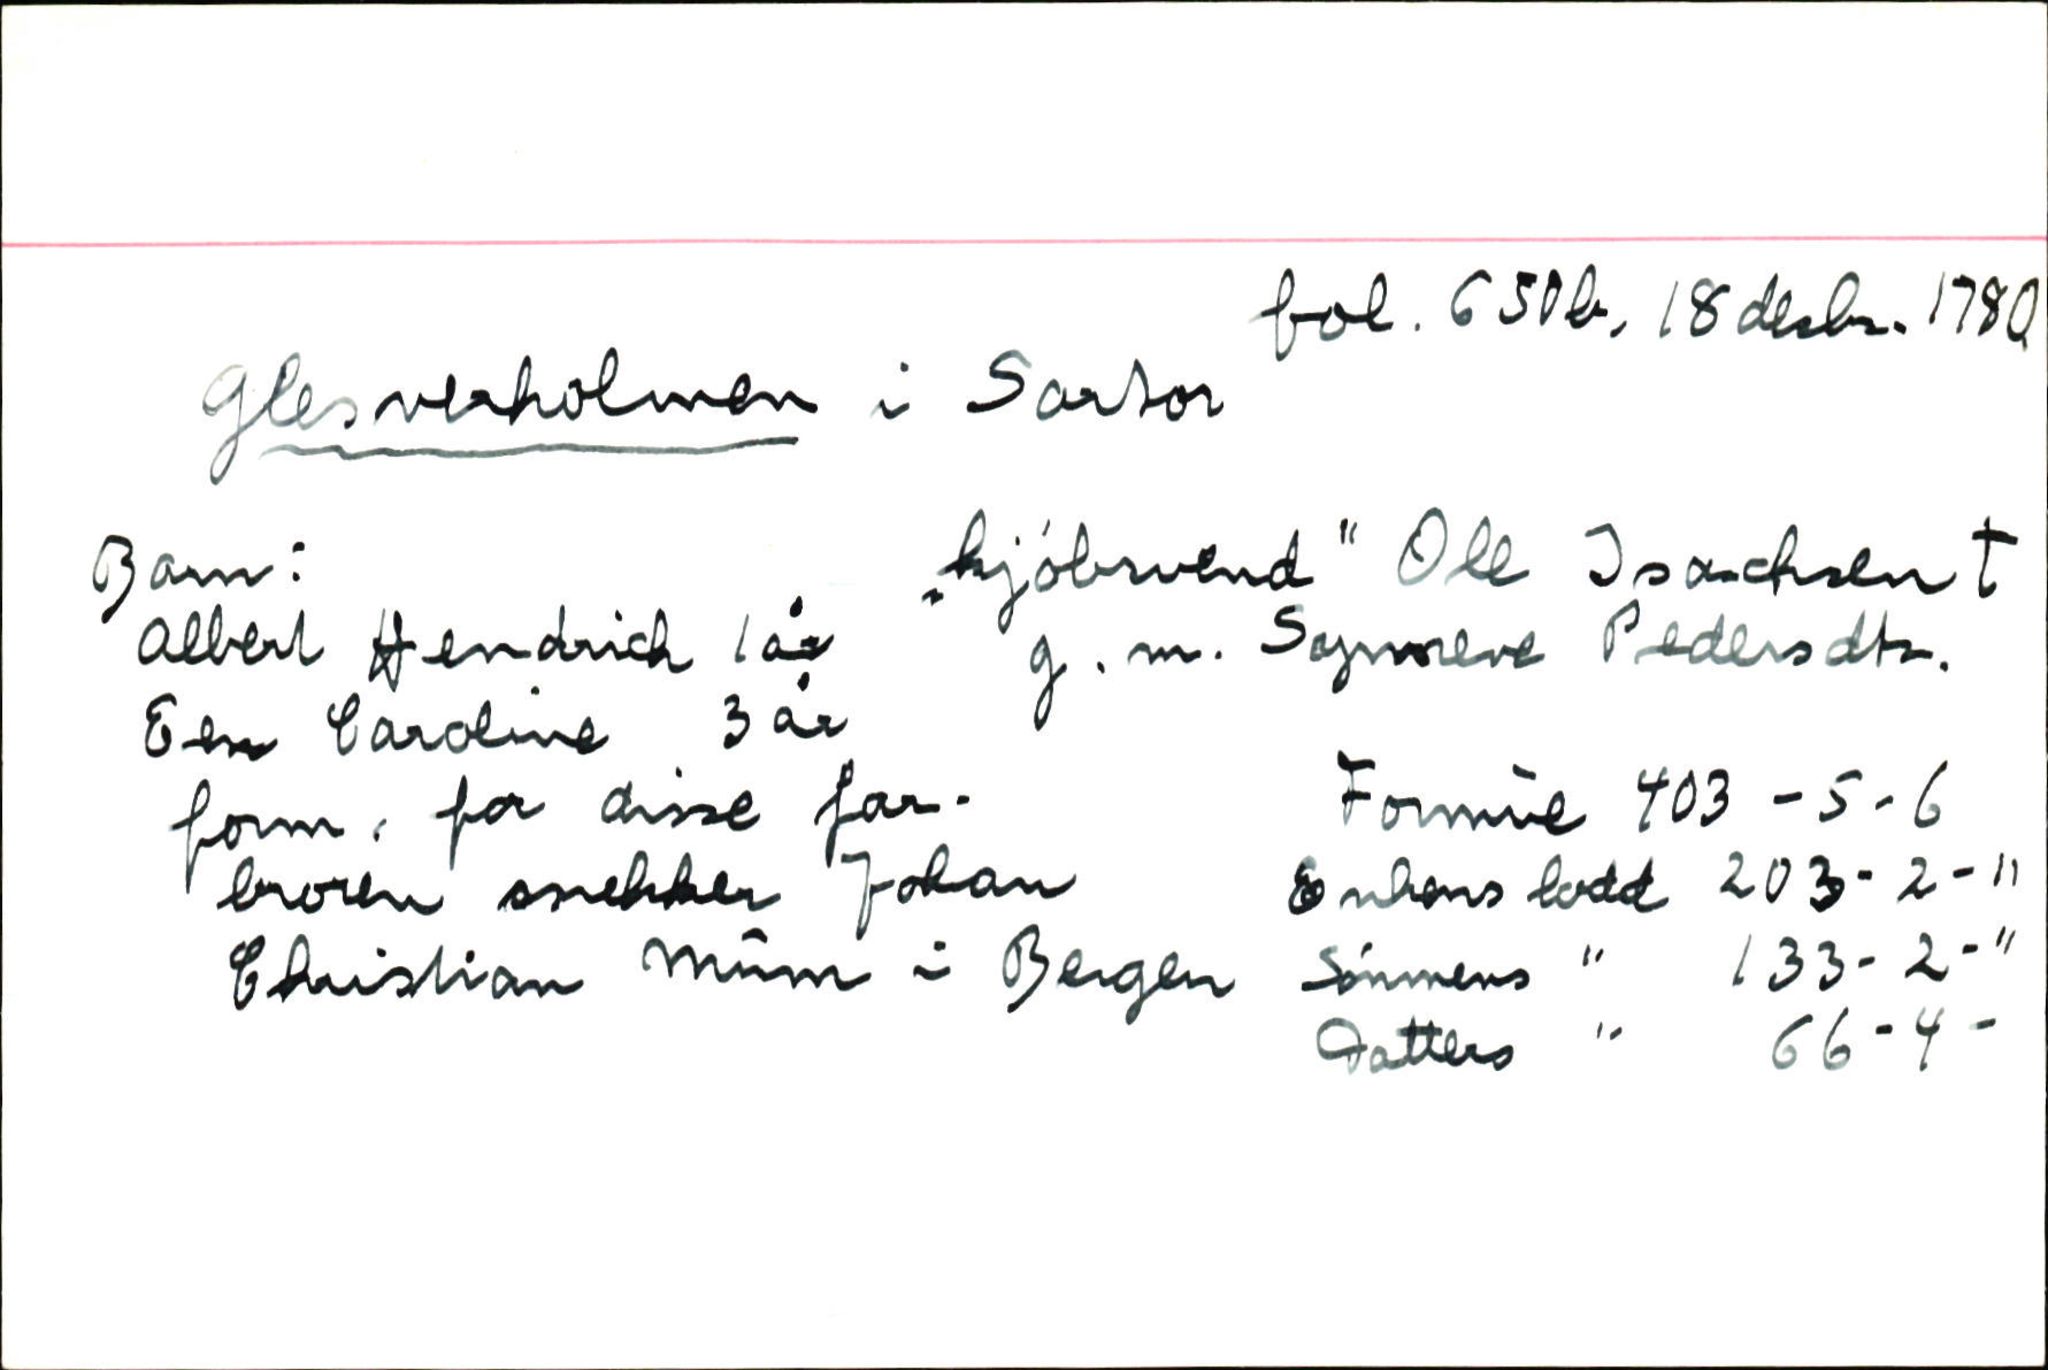 fol. 650b, 18 desbr. 1780
Glesverholmen i Sartor
Barn:
Albert Hendrich 1 år
Een Caroline 3 år
form. for disse far-
broren snekker Johan
Christian Mūm i Bergen
„kjóbmend" Ole Isachsen †
g. m. Synneve Pedersdtr.
Formūe 403 - 5 - 6
Enkens lodd 203 - 2 - "
Sónnens " 133 - 2 - "
Datters " 66 - 4 -